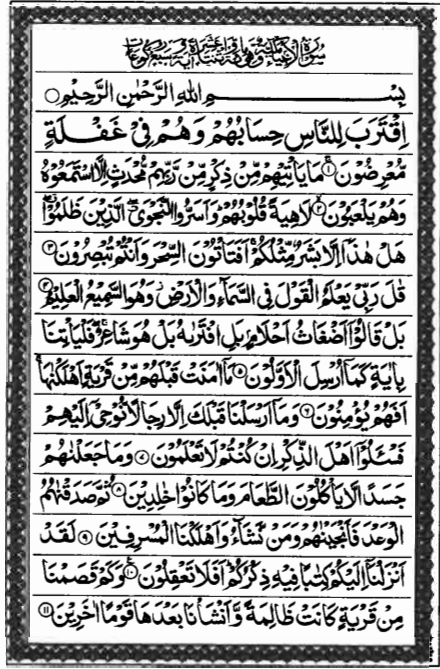 سورة الأنبياء مكية وهي مائة واثنتا عشرة آية وسبع ركوعات
بِسْمِ اللهِ الرَّحْمٰنِ الرَّحِيْمِ ○
اِقْتَرَبَ لِلنَّاسِ حِسَابُهُمْ وَهُمْ فِيْ غَفْلَةٍ
مُّعْرِضُوْنَ ۚ۝۱ مَا يَأْتِيْهِمْ مِّنْ ذِكْرٍ مِّنْ رَّبِّهِمْ مُّحْدَثٍ اِلَّا اسْتَمَعُوْهُ
وَهُمْ يَلْعَبُوْنَ ۙ۝۲ لَاهِيَةً قُلُوْبُهُمْ ؕ وَاَسَرُّوا النَّجْوَى ۖۗ الَّذِيْنَ ظَلَمُوْا ۖۗ
هَلْ هٰذَاۤ اِلَّا بَشَرٌ مِّثْلُكُمْ ۚ اَفَتَاْتُوْنَ السِّحْرَ وَاَنْتُمْ تُبْصِرُوْنَ ۝۳
قٰلَ رَبِّيْ يَعْلَمُ الْقَوْلَ فِي السَّمَآءِ وَالْاَرْضِ ؗ وَهُوَ السَّمِيْعُ الْعَلِيْمُ ۝۴
بَلْ قَالُوْۤا اَضْغَاثُ اَحْلَامٍۭ بَلِ افْتَرٰىهُ بَلْ هُوَ شَاعِرٌ ۖۚ فَلْيَاْتِنَا
بِاٰيَةٍ كَمَاۤ اُرْسِلَ الْاَوَّلُوْنَ ۝۵ مَاۤ اٰمَنَتْ قَبْلَهُمْ مِّنْ قَرْيَةٍ اَهْلَكْنٰهَا ۚ
اَفَهُمْ يُؤْمِنُوْنَ ۝۶ وَمَاۤ اَرْسَلْنَا قَبْلَكَ اِلَّا رِجَالًا نُّوْحِيْۤ اِلَيْهِمْ
فَسْـَٔلُوْۤا اَهْلَ الذِّكْرِ اِنْ كُنْتُمْ لَا تَعْلَمُوْنَ ۝۷ وَمَا جَعَلْنٰهُمْ
جَسَدًا لَّا يَاْكُلُوْنَ الطَّعَامَ وَمَا كَانُوْا خٰلِدِيْنَ ۝۸ ثُمَّ صَدَقْنٰهُمُ
الْوَعْدَ فَاَنْجَيْنٰهُمْ وَمَنْ نَّشَآءُ وَاَهْلَكْنَا الْمُسْرِفِيْنَ ۝۹ لَقَدْ
اَنْزَلْنَاۤ اِلَيْكُمْ كِتٰبًا فِيْهِ ذِكْرُكُمْ ؕ اَفَلَا تَعْقِلُوْنَ ۝۱۰ وَكَمْ قَصَمْنَا
مِنْ قَرْيَةٍ كَانَتْ ظَالِمَةً وَّاَنْشَاْنَا بَعْدَهَا قَوْمًا اٰخَرِيْنَ ۝۱۱